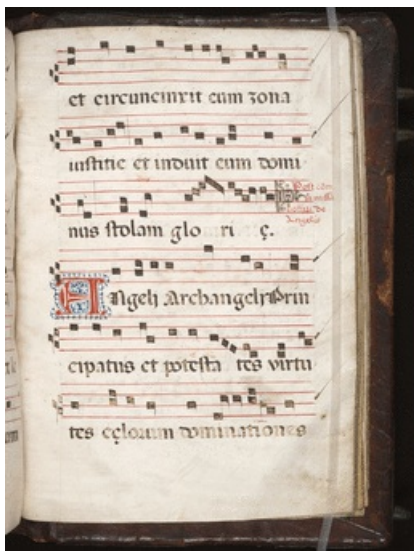 et circuncinxit eum zona
iustitie et induit eum domi
nus stolam glo ri ę.
Angeli Archangeli Prin
cipatus et potesta tes virtu
tes cęlorum dominationes